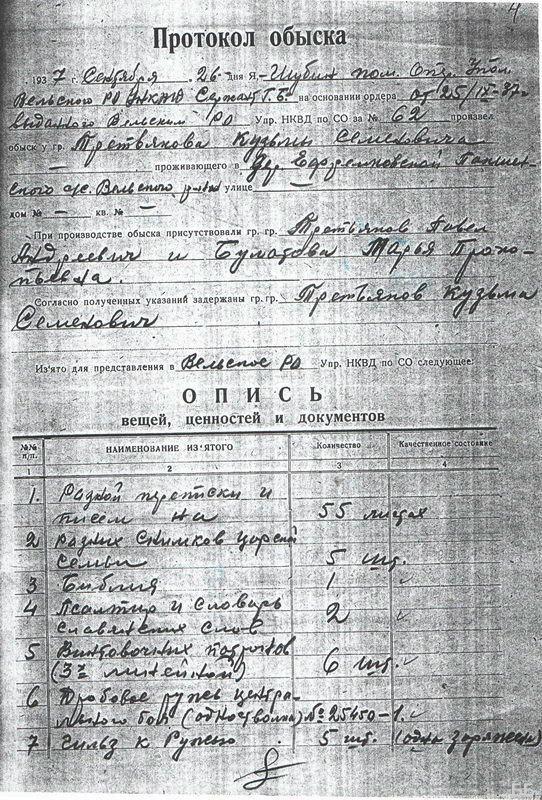 4
Протокол обыска
1937 г. Сентября 26 дня Я, Шубин пом. Опер. Упол.
Вельского РО НКВД Сержант Г.Б. на основании ордера от 25/IX-37
выданого Вельским РО Упр. НКВД по СО за № 62 произвел
обыск у гр. Третьякова Кузьмы Семеновича
— проживающего в дер. Ефремковской
ского с/с. Вельского р-на улице —
дом № — кв. № —
При производстве обыска присутствовали гр. гр. Третьяков Павел
Андреевич и Марья Проко-
пьевна.
Согласно полученных указаний задержаны гр. гр. Третьяков Кузьма
Семенович
Из'ято для представления в Вельское РО Упр. НКВД по СО следующее:
ОПИСЬ
вещей, ценностей и документов
№№ п/п. НАИМЕНОВАНИЕ ИЗ'ЯТОГО Количество Качественное состояние
1 2 3 4
1. Разной переписки и
писем на 55 листах
2 разных снимков царской
семьи 5 шт.
3 Библия 1
4 Псалтир и словарь
славянских слов 2
5 Винтовочных патронов
(3х линейной) 6 шт.
6 Дробовое ружье центра-
льного боя (одностволка) № 25450 - 1.
7 Гильз к Ружью 5 шт. (одна заряжена)